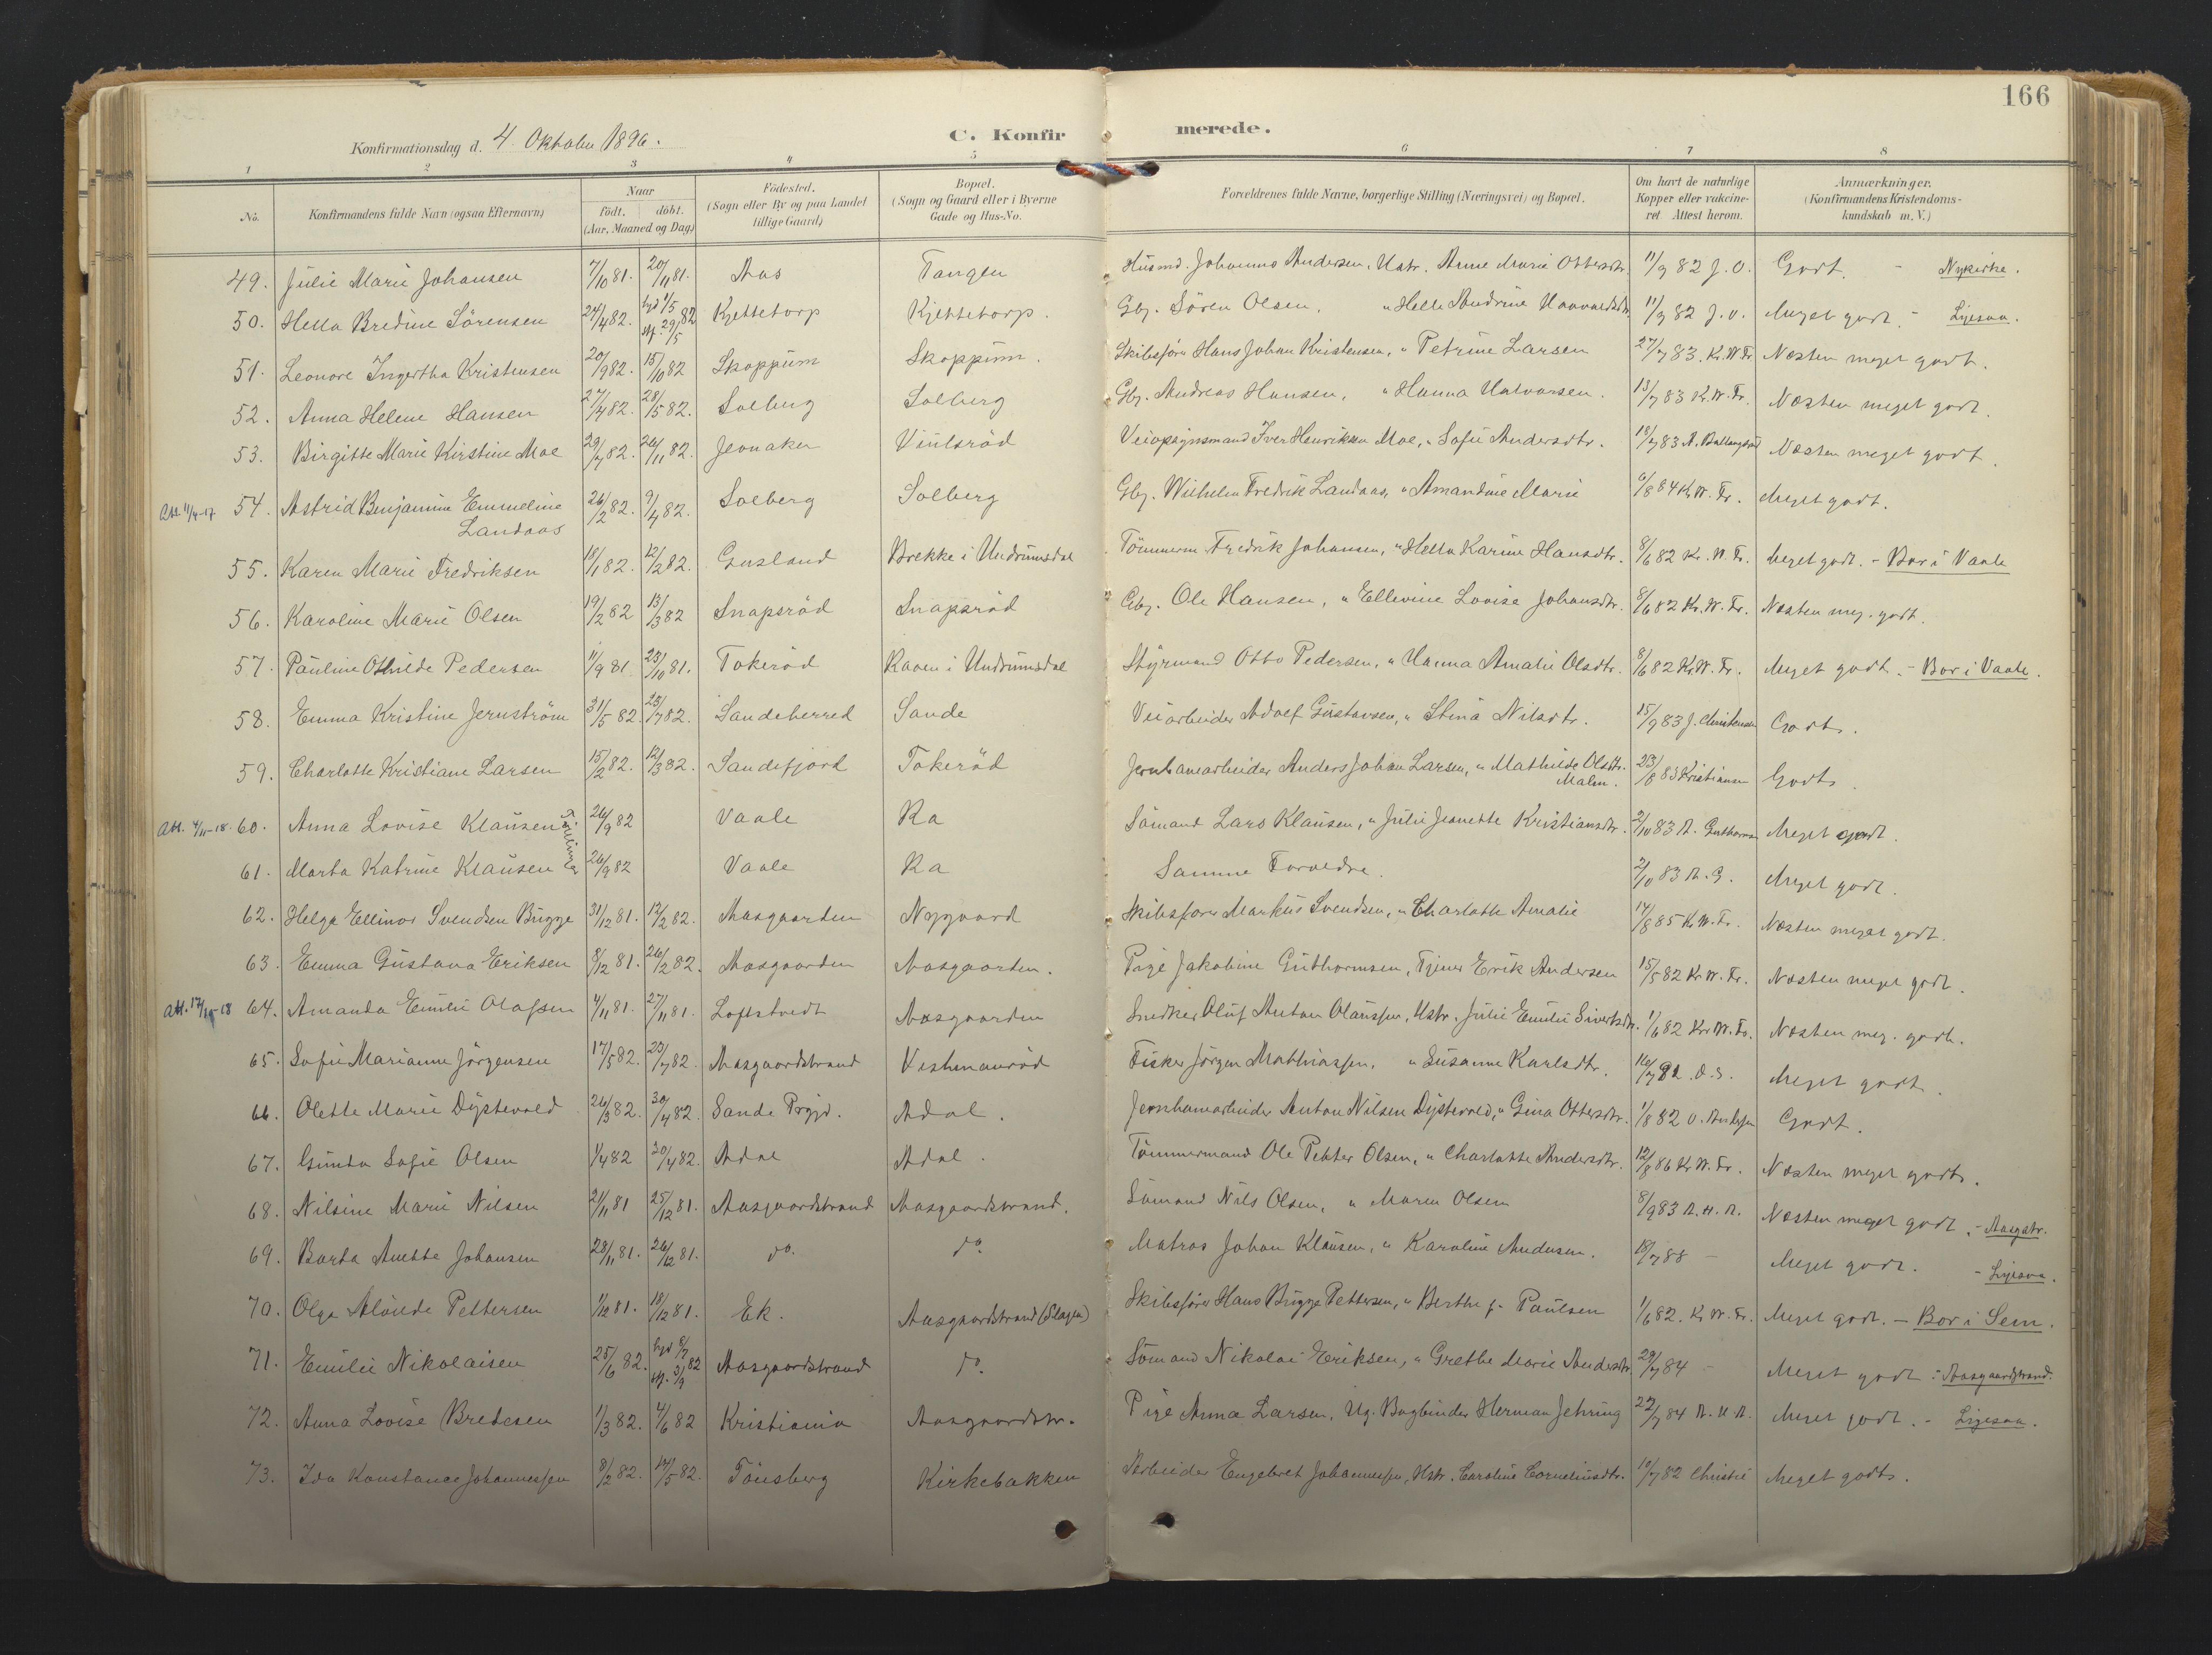 166
Konfirmationsdag d. 4. Oktober 1896.
C. Konfirmerede.
1 2 3 4 5 6 7 8
No.
Konfirmandens fulde Navn (ogsaa Efternavn)
Naar
födt. döbt.
(Aar, Maaned og Dag)
Födested.
(Sogn eller By og paa Landet
tillige Gaard)
Bopæl.
(Sogn og Gaard eller i Byerne
Gade og Hus-No.
Forældrenes fulde Navne, borgerlige Stilling (Næringsvei) og Bopæl.
Om havt de naturlige
Kopper eller vakcine-
ret Attest herom.
Anmærkninger.
(Konfirmandens Kristendoms-
kundskab m. V.)
49. Julie Marie Johansen 7/10 81. 20/11 81. Aas Tangen Husmd. Johannes Andersen, Ustr. Anne Marie Ottersdtr. 11/9 82 J.O. Godt. - Nykirke.
50. Hella Bredine Sörensen 24/4 82. hjd 1/5 82 stf 29/5 Kjettetorp Kjettetorp. Gbr. Sören Olsen, " Helle Andrine 11/9 82 J.O. Meget godt. - Ligesaa.
51. Leonore Ingertha Kristensen 20/9 82. 15/10 82 Skoppum Skoppum. Skibsförer Hans Johan Kristensen, " Petrine Larsen 27/7 83. Kr.W.Fr. Næsten meget godt.
52. Anna Helene Hansen 27/4 82. 28/5 82. Solberg Solberg Gbr. Andreas Hansen, " Hanna Halvorsen. 13/7 83 Kr.W.Fr. Næsten meget godt.
53. Birgitte Marie Kirstine Moe 29/7 82. 26/11 82. Jevnaker Viulsröd Veiopsynsmand Iver Henriksen Moe, " Sofie Andersdtr. 18/7 83 A. Ballangrud Næsten meget godt.
Att 11/4-17 54. Astrid Benjamine Emmeline
Landaas 26/2 82. 9/4 82. Solberg Solberg Gbr. Wilhelm Fredrik Landaas, " Amandine Marie 6/8 84 Kr.W.Fr. Meget godt.
55. Karen Marie Fredriksen 18/1 82. 12/2 82. Gusland Brekke i Undrumsdal Tömmerm. Fredrik Johansen, " Hella Karine Hansdtr. 8/6 82 Kr.W.Fr. Meget godt. - Bor i Vaale
56. Karoline Marie Olsen 19/2 82 13/3 82 Snapsröd Snapsröd Gbr. Ole Hansen, " Ellevine Lovise Johansdtr. 8/6 82 Kr.W.Fr. Næsten meg. godt.
57. Pauline Othilde Pedersen 11/9 81 23/10 81. Tokeröd Raaen i Undrumsdal Styrmand Otto Pedersen, " Hanna Amalie Olsdtr. 8/6 82 Kr.W.Fr. Meget godt. - Bor i Vaale.
58. Emma Kristine Jernström 31/5 82. 23/7 82. Sandeherred Sande Veiarbeider Adolf Gustavsen, " Stina Nilsdtr. 15/9 83 J. Christensen Godt.
59. Charlotte Kristiane Larsen 15/2 82. 12/3 82. Sandefjord Tokeröd Jernbanearbeider Anders Johan Larsen, " Mathilde Olsdtr.
Malm. 23/8 83 Kristiansen Godt.
Att. 4/11-18. 60. Anna Lovise Klausen Tvillinger 26/9 82 Vaale Ra Sömand Lars Klausen, " Julie Jeanette Kristiansdtr. 2/10 83 A. Guthormsen Meget godt.
61. Marta Katrine Klausen 26/9 82 Vaale Ra Samme Forældre. 2/10 83 A.G. Meget godt.
62. Helga Ellinor Svendsen Bugge 31/12 81. 12/2 82. Aasgaarden Nygaard Skibsförer Markus Svendsen, " Charlotte Amalie 14/8 85 Kr.W.Fr. Næsten meget godt.
63. Emma Gustava Eriksen 8/12 81. 26/2 82. Aasgaarden Aasgaarden. Pige Jakobine Guthormsen, Tjener Erik Andersen 15/5 82 Kr.W.Fr. Næsten meget godt.
Att. 17/10-18 64. Amanda Emilie Olafsen 4/11 81. 27/11 81. Loftstvedt Aasgaarden Snedker Oluf Anton Olaussen, Ustr. Julie Emilie Sivertsdtr. 1/6 82 Kr.W.Fr. Næsten meg. godt.
65. Sofie Marianne Jörgensen 17/5 82. 23/7 82. Aasgaardstrand Vestmanröd Fisker Jörgen Mathiassen, " Susanne Karlsdtr. 16/7 82. O.S. Meget godt.
66. Olette Marie Dystevold 26/3 82. 30/4 82. Sande Prgjd. Adal. Jernbanearbeider Anton Nilsen Dystevold, " Gina Ottersdtr. 1/8 82 O. Andersen Godt.
67. Gunda Sofie Olsen 1/4 82 30/4 82. Adal Adal. Tömmermand Ole Petter Olsen, " Charlotte Andersdtr. 12/8 86 Kr.W.Fr. Næsten meget godt.
68. Nilsine Marie Nilsen 21/11 81 25/12 81. Aasgaardstrand Aasgaardstrand. Sömand Nils Olsen, " Maren Olsen 8/9 83 A.H.A. Næsten meget godt. - Aasgstr.
69. Barta Anette Johansen 28/11 81. 26/12 81. do. do. Matros Johan Klausen, " Karoline Andersen. 18/7 88 - Meget godt. - Ligesaa.
70. Olga Alvilde Pettersen 1/12 81. 18/12 81. Ek. Aasgaardstrand (Slagen) Skibsförer Hans Brygge Pettersen, " Berthe f. Paulsen 1/6 82. Kr.W.Fr. Meget godt. - Bor i Sem.
71. Emilie Nikolaisen 25/6 82. hjd 8/7 82 stf. 3/9 Aasgaardstrand do. Sömand Nikolai Eriksen, " Grethe Marie Andersdtr. 29/7 84 - Meget godt - Aasgaardstrand.
72. Anna Lovise Bredesen 1/3 82. 4/6 82 Kristiania Aasgaardstr. Pige Anna Larsen, Ug. Bogbinder Herman Jehring 22/7 84 A.H.A. Meget godt. - Ligesaa.
73. Ida Konstance Johannessen 8/2 82. 14/5 82. Tönsberg Kirkebakken Arbeider Engebret Johannessen, Ustr. Caroline Corneliusdtr. 10/7 82 Christie Meget godt.